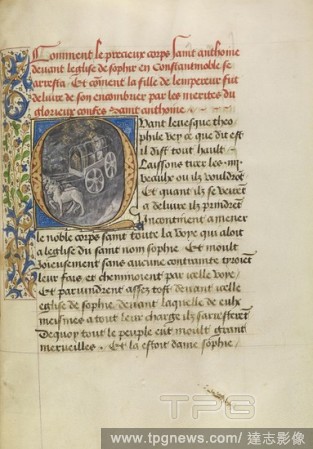 Comment le precieux corps saint anthoine
devant leglise de sophie en Constantinoble se
arresta Et comment la fille de lempereur fut
delivre de son encombrier par les merites du
glorieux confes saint anthoine
Quant levesque theo
phile vey ce que dit est
il dist tout hault
Laissons tirer les
veaulx ou ilz vouldront
Et quant ilz se veirent
a delivre ilz prindrent
Incontinent a mener
le noble corps saint toute la voye qui aloit
a leglise du saint nom sophie Et moult
joieusement sans aucune contrainte tiroient
leur fais et chemynoient par icelle voye
Et parvindrent assez tost devant icelle
eglise de sophie devant laquelle de eulx
meismes a tout leur charge ilz sarresterent
Dequoy tout le peuple eut moult grant
merveilles Et la estoit dame sophie
TPG
www.tpgnews.com/ 達志影像